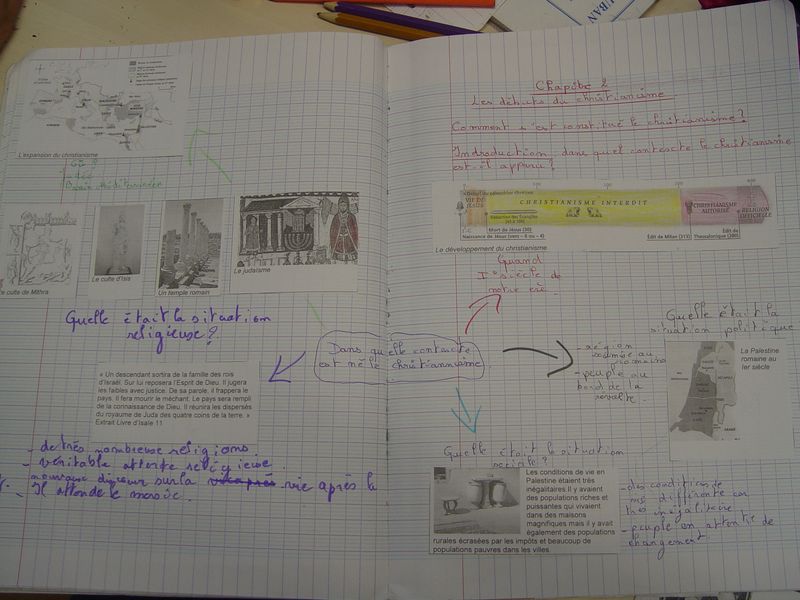 L'expansion du christianisme
Où ?
Le culte d'Isis
Un temple romain
Le judaïsme
le culte de Mithra
Quelle était la situation
religieuse ?
« Un descendant sortira de la famille des rois
d'Israël. Sur lui reposera l'Esprit de Dieu. Il jugera
les faibles avec justice. De sa parole, il frappera le
pays. Il fera mourir le méchant. Le pays sera rempli
de la connaissance de Dieu. Il réunira les dispersés
du royaume de Juda des quatre coins de la terre. »
Extrait Livre d'Isaïe 11
- de très nombreuse religions.
- véritable attente religieuse.
sur la vie après la
- Il attende le messie.
Chapitre 2
Les débuts du christianisme
Comment s'est constitué le christianisme ?
Indroduction : dans quel contexte le christianisme
est-il apparu ?
VIE DE
JÉSUS
CHRISTIANISME INTERDIT
CHRISTIANISME
AUTORISÉ
RELIGION
OFFICIELLE
Rédaction des Évangiles
Mort de Jésus (30)
Naissance de Jésus (vers – 6 ou – 4)
Édit de Milan (313)
Édit de
Thessalonique (380)
Le développement du christianisme
Quand
Ier siècle de
notre ère
Dans quelle contexte
est né le christiannisme
Quelle était la
situation politique
- région
soumise au
romains
- peuple au
bord de la
révolte.
La Palestine
romaine au
Ier siècle
Quelle était le situation
sociale ?
Les conditions de vie en
Palestine étaient très
inégalitaires Il y avaient
des populations riches et
puissantes qui vivaient
dans des maisons
magnifiques mais il y avait
également des populations
rurales écrasées par les impôts et beaucoup de
populations pauvres dans les villes
- des conditions de
vie différente car
très inégalitaire
- peuple en attente de
changement